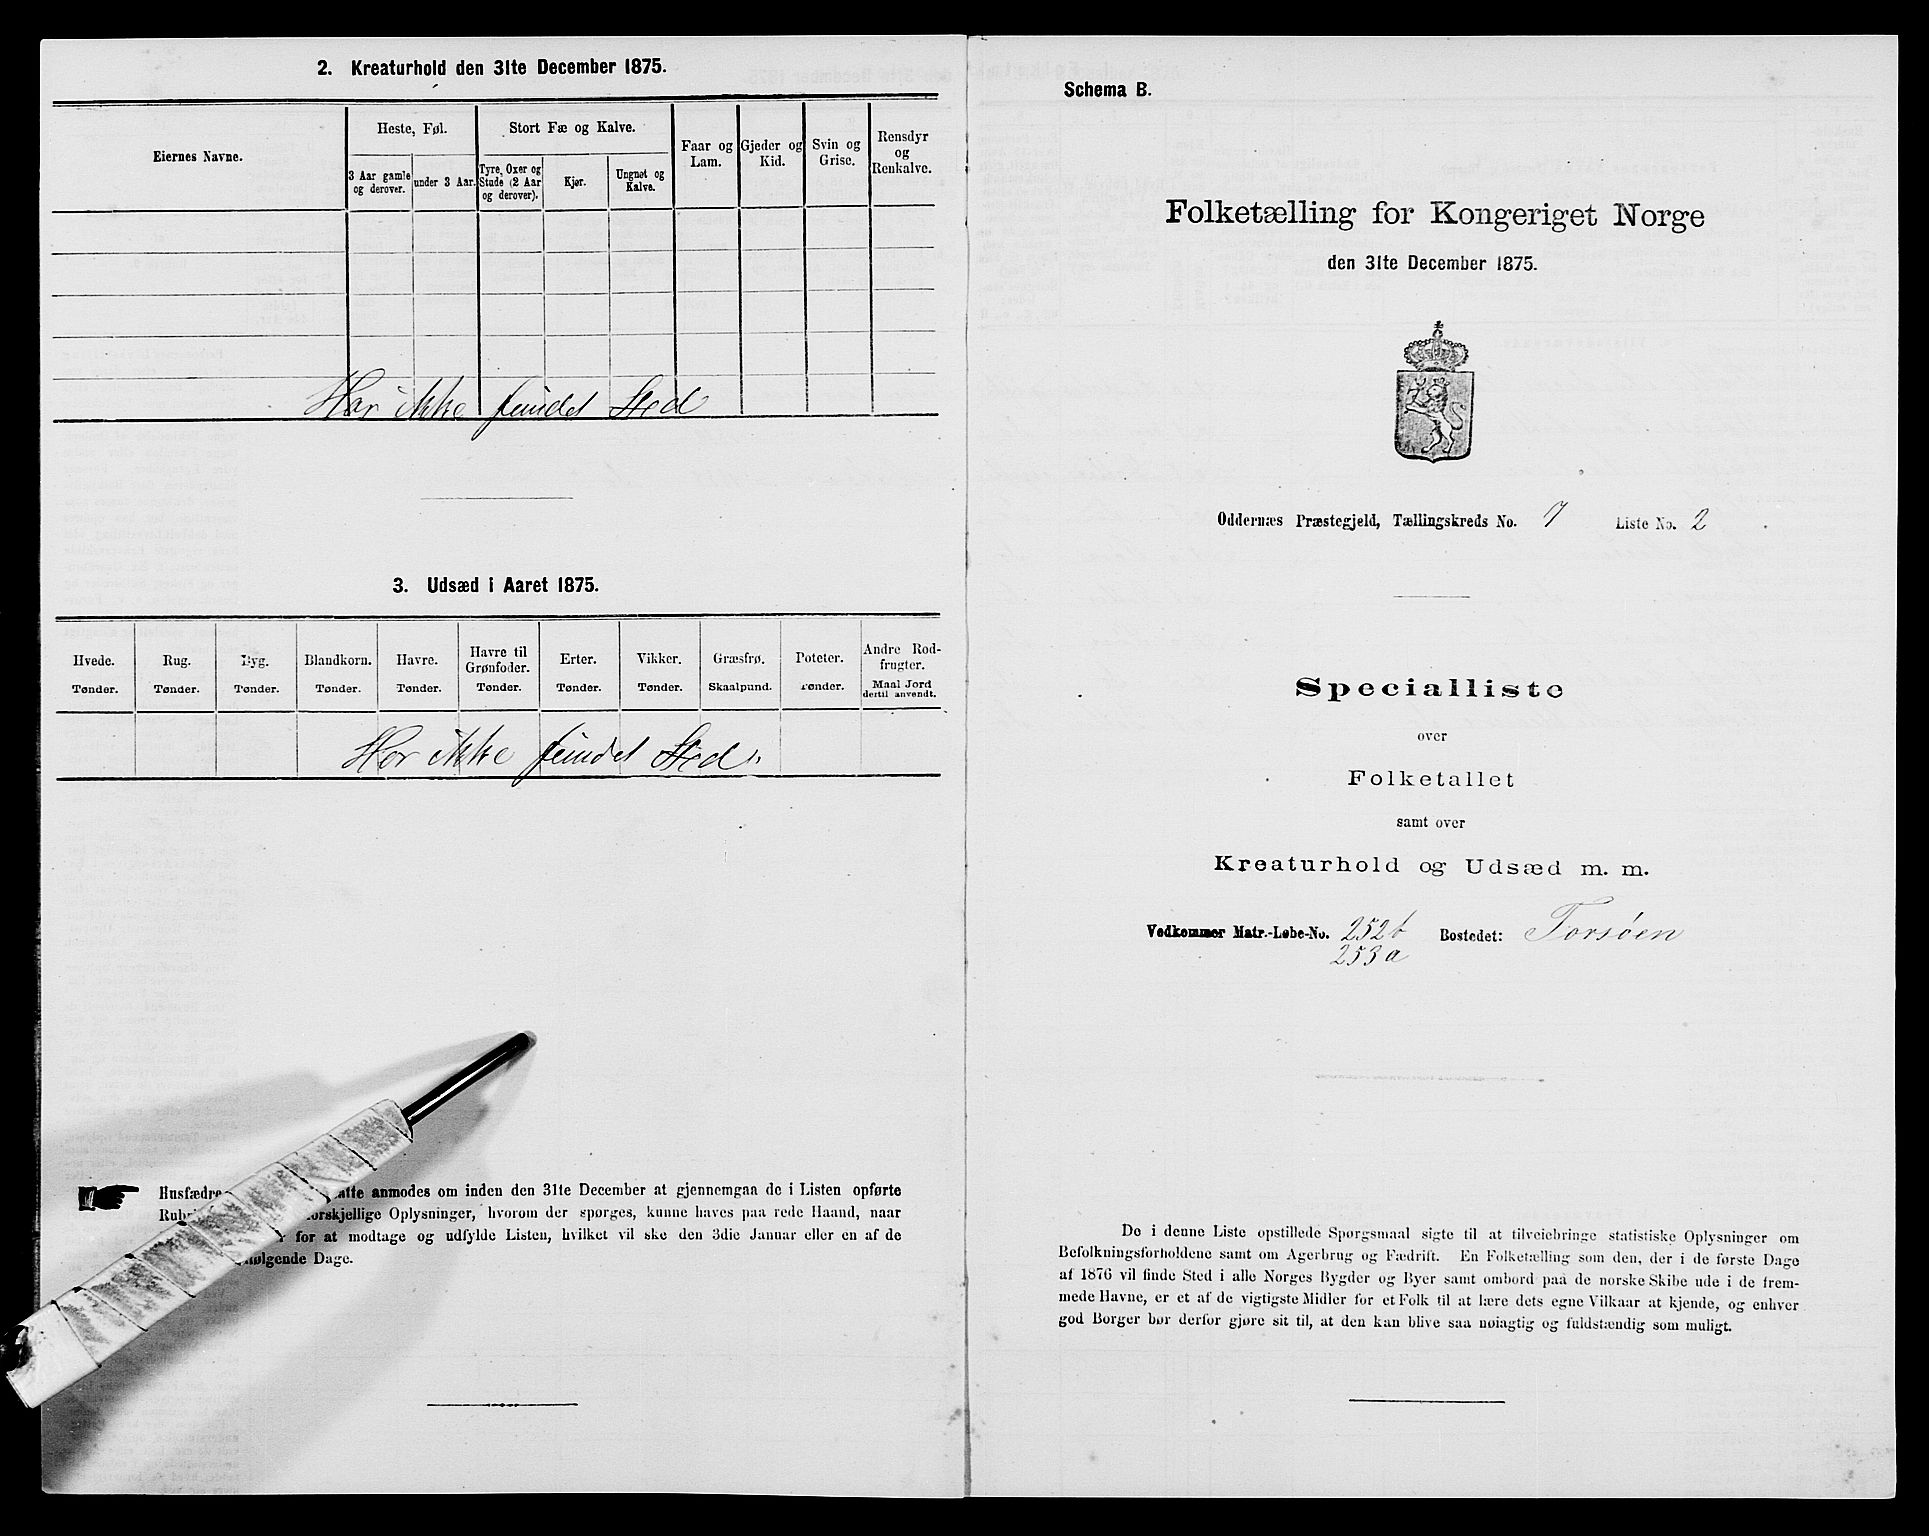 2. Kreaturhold den 31te December 1875.
Eiernes Navne.
Heste, Føl.
3 Aar gamle og derover.
under 3 Aar.
Stort Fæ og Kalve.
Tyre, Oxer og Stude (2 Aar og derover).
Kjør.
Ungnøt og Kalve.
Faar og Lam.
Gjeder og Kid.
Svin og Grise.
Rensdyr og Renkalve.
Har ikke fundet Sted
3. Udsæd i Aaret 1875.
Hvede. Rug. Byg. Blandkorn. Havre. Havre til Grønfoder. Erter. Vikker. Græsfrø. Poteter. Andre Rodfrugter.
Tønder. Tønder. Tønder. Tønder. Tønder. Tønder. Tønder. Tønder. Skaalpund. Tønder. Maal Jord dertil anvendt.
Har ikke fundet Sted.
Husfædre atte anmodes om inden den 31te December at gjennemgaa de i Listen opførte
Rubri orskjellige Oplysninger, hvorom der spørges, kunne haves paa rede Haand, naar
r for at modtage og udfylde Listen, hvilket vil ske den 3die Januar eller en af de
følgende Dage.
Schema B.
Folketælling for Kongeriget Norge
den 31te December 1875.
Oddernæs Præstegjeld, Tællingskreds No. 7 Liste No. 2
Specialliste
over
Folketallet
samt over
Kreaturhold og Udsæd m. m.
Vedkommer Matr.-Løbe-No. 252b Bostedet: Torsøen
253a
De i denne Liste opstillede Spørgsmaal sigte til at tilveiebringe statistiske Oplysninger om
Befolkningsforholdene samt om Agerbrug og Fædrift. En Folketælling som den, der i de første Dage
af 1876 vil finde Sted i alle Norges Bygder og Byer samt ombord paa de norske Skibe ude i de frem-
mede Havne, er et af de vigtigste Midler for et Folk til at lære dets egne Vilkaar at kjende, og enhver
god Borger bør derfor gjøre sit til, at den kan blive saa nøiagtig og fuldstændig som muligt.